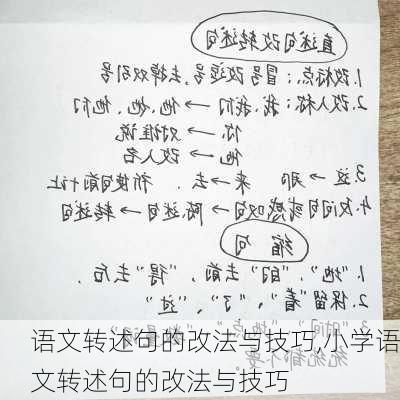 直述句改转述句
1.改标点:冒号改逗号,去掉双引号
2.改人称:我、我们→他、她、他们
你→对谁说
他→改人名
3.这→那 来→去. 祈使句前+让
4.反问句或感叹句→陈述句→转述句
缩句
1."地"、"的"去前,"得"去后.
2.保留"着"、"了"、"过"。
3."时间"、"地点"
语文转述句的改法与技巧,小学语
文转述句的改法与技巧